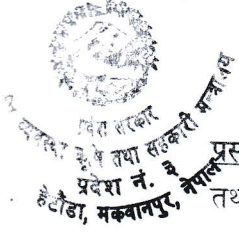 प्रदेश सरकार
व्यवस्था, कृषि तथा सहकारी मन्त्रालय
प्रदेश नं. ३
हेटौंडा, मकवानपुर, नेपाल
प्रस
तथ